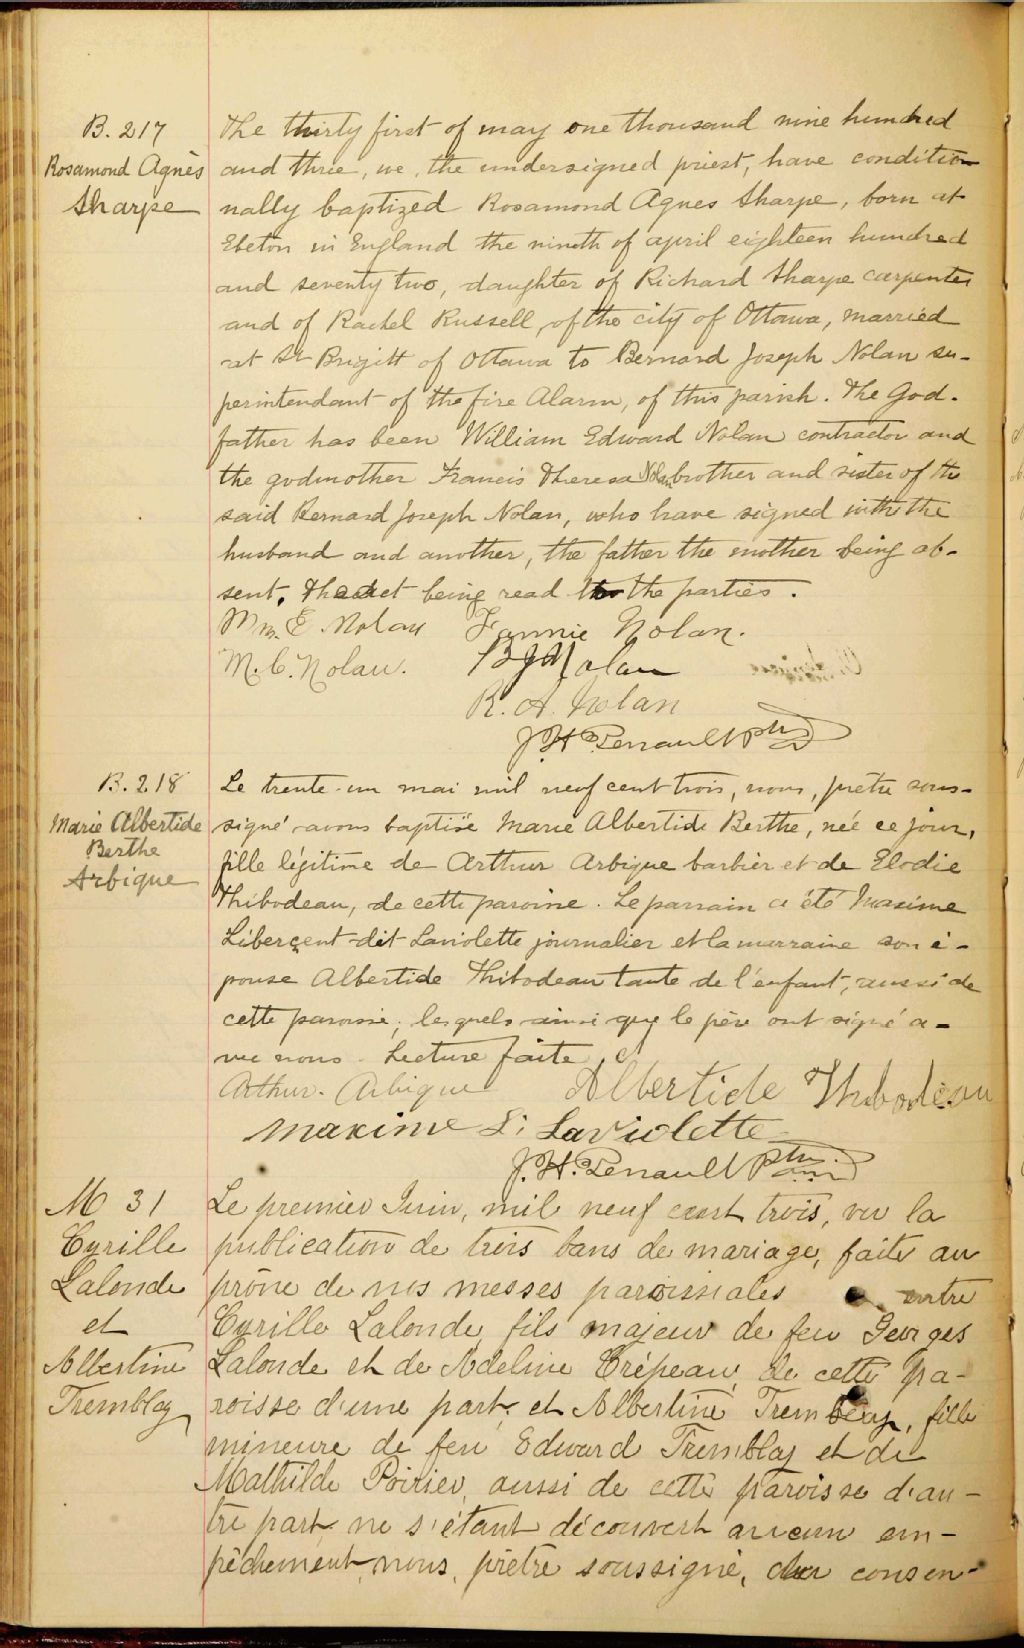 B. 217
Rosamond Agnès
Sharpe
The thirty first of may one thousand nine hundred
and three, we, the undersigned priest, have condition
nally baptized Rosamond Agnes Sharpe, born at
Ebeton in England the nineth of april eighteen hundred
and seventy two, daughter of Richard Sharpe carpenter
and of Rachel Russell, of the city of Ottawa, married
at St Brigitt of Ottawa to Bernard Joseph Nolan su-
perintendant of the fire Alarm, of this parish. The God-
father has been William Edward Nolan contractor and
the godmother Francis Theresa Nolan brother and sister of the
said Bernard Joseph Nolan, who have signed with the
husband and another, the father the mother being ab-
sent. The act being read to the parties.
Wm. E. Nolan Fannie Nolan.
M. C. Nolan. B J Nolan
R. A. Nolan
J. H. Renault Ptre
B. 218
Marie Albertide
Berthe
Arbique
Le trente-un mai mil neuf cent trois, nous, prêtre sous-
signé avons baptisé Marie Albertide Berthe, née ce jour,
fille légitime de Arthur Arbique barbier et de Elodie
Thibodeau, de cette paroisse. Le parrain a été Maxime
Libercent-dit-Laviolette journalier et la marraine son é-
pouse Albertide Thibodeau tante de l'enfant, aussi de
cette paroisse, lesquels ainsi que le père ont signé a-
vec nous. Lecture faite
Arthur. Arbique Albertide Thibodeau
Maxime L. Laviolette
J. H. Renault Ptre
M 31
Cyrille
Lalonde
et
Albertine
Tremblay
Le premier Juin, mil neuf cent trois, vu la
publication de trois bans de mariage, faite au
prône de nos messes paroissiales entre
Cyrille Lalonde, fils majeur de feu Georges
Lalonde et de Adeline Crépeau, de cette pa-
roisse d'une part, et Albertine Tremblay, fille
mineure de feu Edward Tremblay et de
Mathilde Poirier, aussi de cette paroisse d'au-
tre part ne s'étant découvert aucun em-
pêchement, nous, prêtre soussigné, du consen-